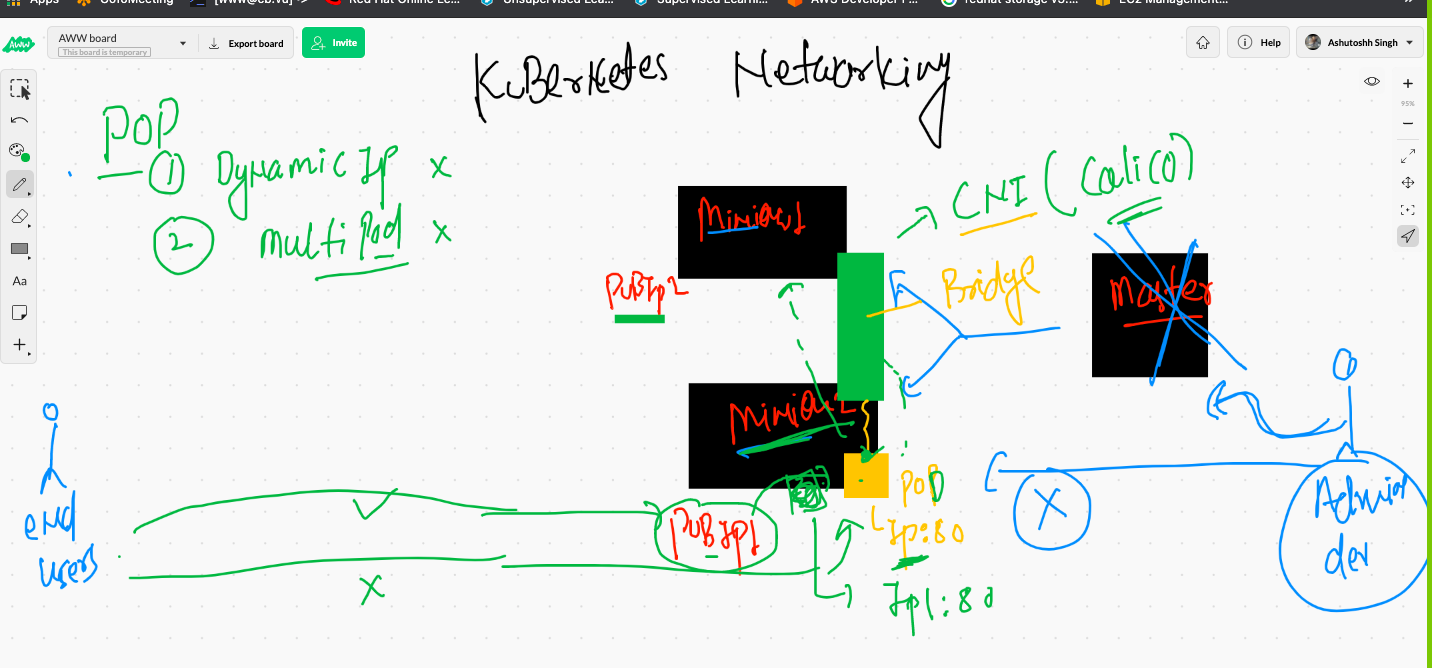 Apps
GoToMeeting
[www@cb.vu] ~>
Red Hat Online Le...
Unsupervised Lea...
Supervised Learni...
AWS Developer P...
redhat storage v3....
EC2 Management...
AWW
AWW board
This board is temporary
Export board
Invite
Help
Ashutoshh Singh
95%
Aa
KuBerNetes Networking
POP
1 Dynamic Ip x
2 multi Pod x
Minion1
CNI (Calico)
PuBIp2
Bridge
Master
Minion2
POD
Ip:80
PuBIp1
Ip1:80
end
users
x
X
dev